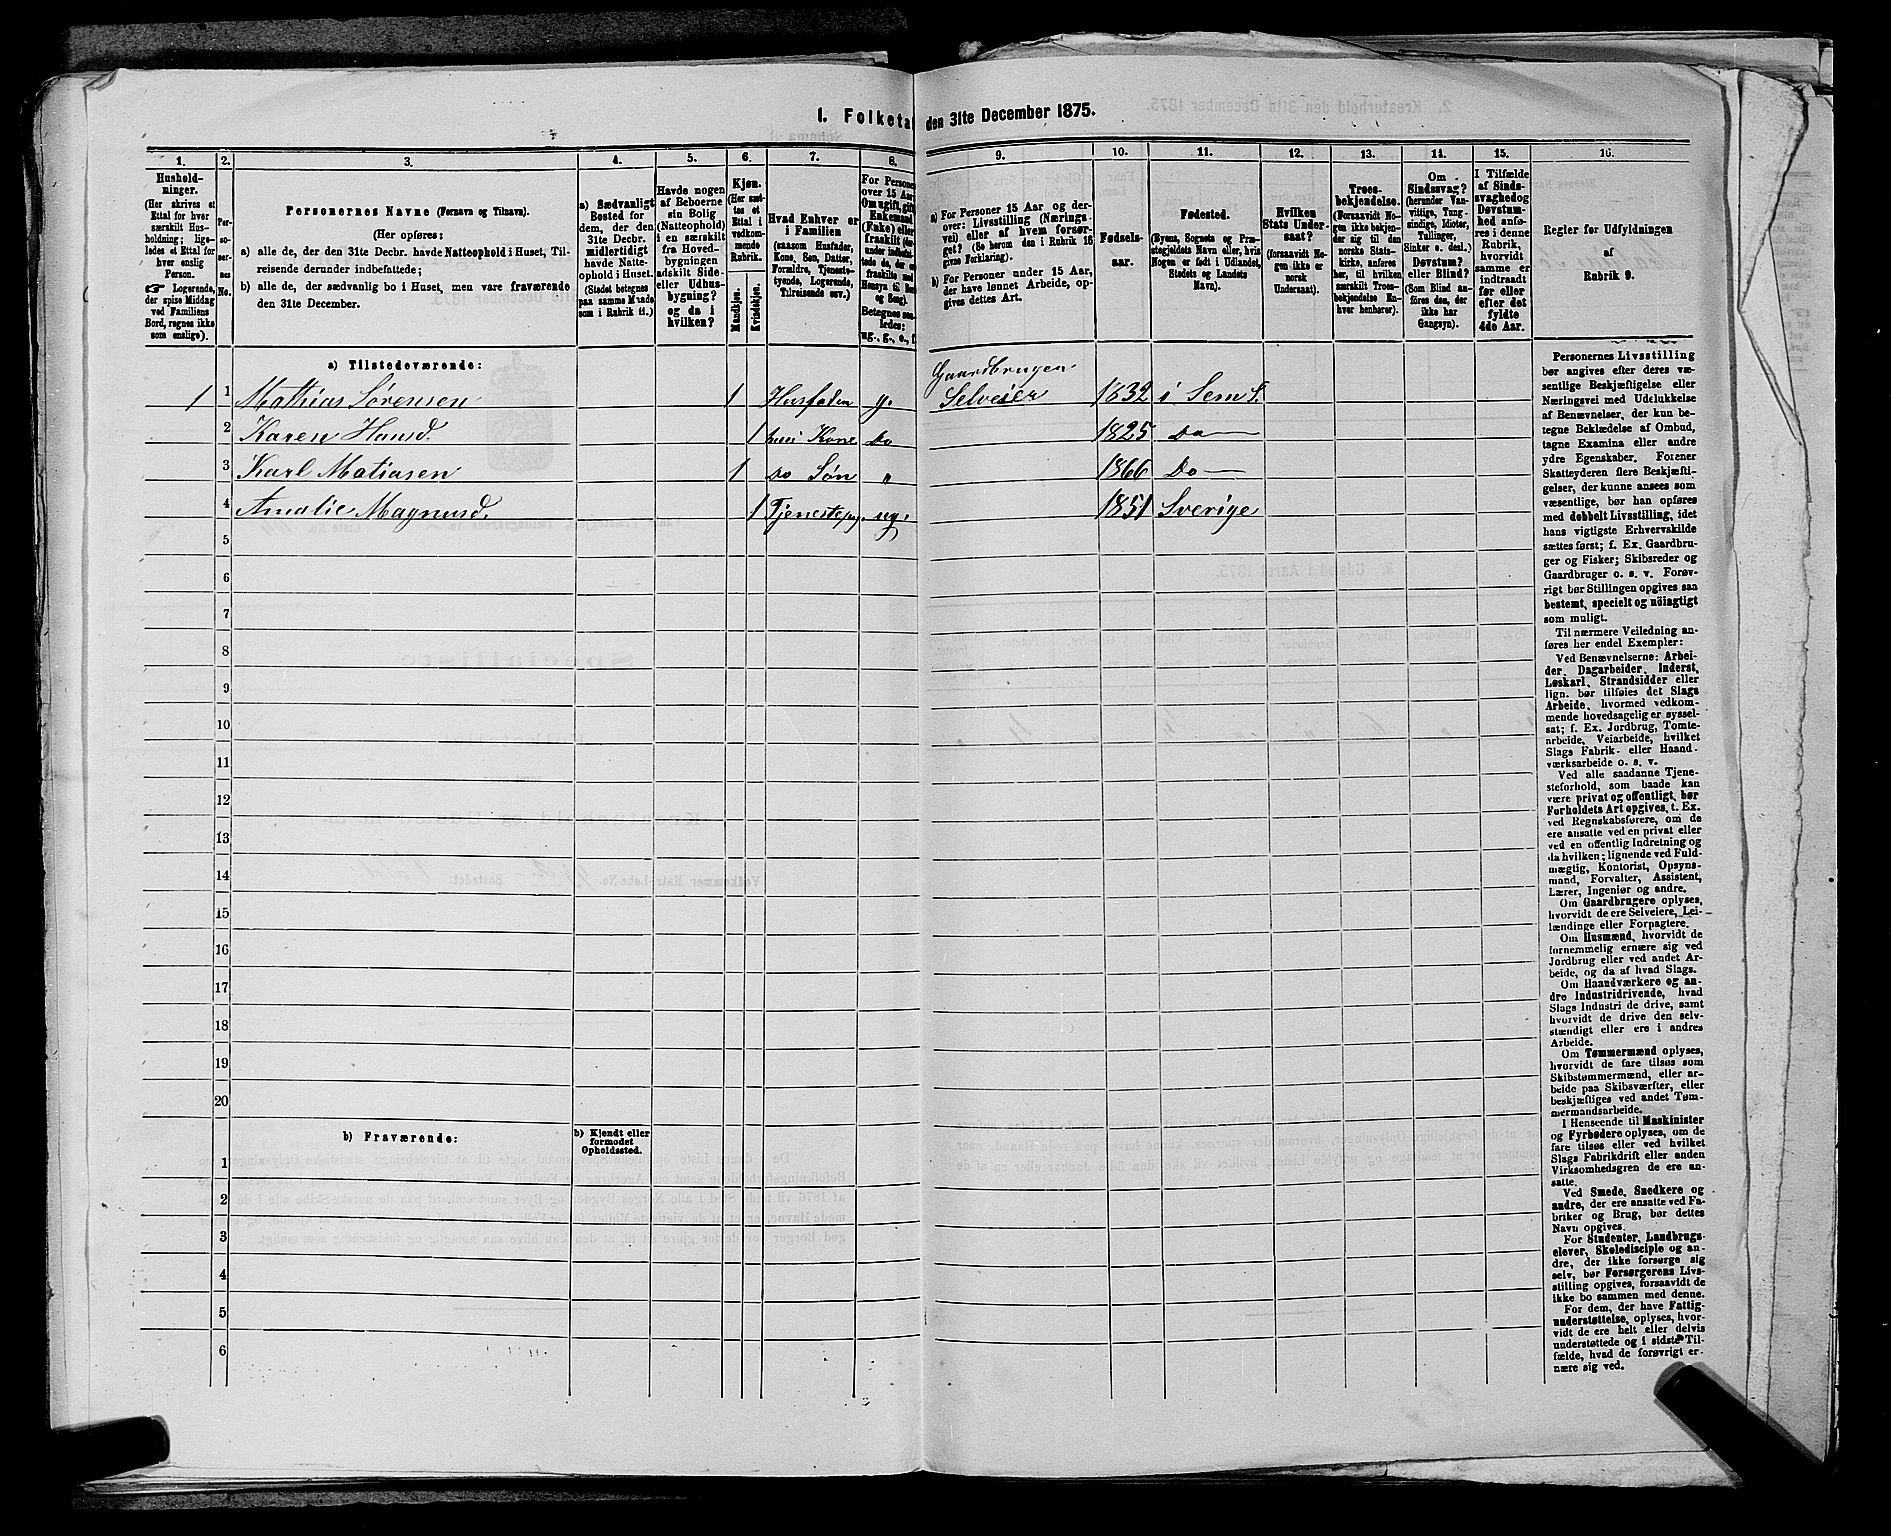 1. Folketæ den 31te December 1875.
1. 2. 3. 4. 5. 6. 7. 8. 9. 10. 11. 12. 13. 14. 15. 16.
Hushold-
ninger.
(Her skrives et
Ettal for hver
særskilt Hus-
holdning; lige-
ledes et Ettal for
hver enslig
Person.
☞ Logerende,
der spise Middag
ved Familiens
Bord, regnes ikke
som enslige).
Per-
so-
ner-
nes
No.
Personernes Navne (Fornavn og Tilnavn).
(Her opføres;
a) alle de, der den 31te Decbr. havde Natteophold i Huset, Til-
reisende derunder indbefattede;
b) alle de, der sædvanlig bo i Huset, men vare fraværende
den 31te December.
a) Sædvanligt
Bosted for
dem, der den
31te Decbr.
midlertidigt
havde Natte-
ophold i Huset.
(Stedet betegnes
paa samme Maade
som i Rubrik 11.)
Havde nogen
af Beboerne
sin Bolig
(Natteophold)
i en særskilt
fra Hoved-
bygningen
adskilt Side-
eller Udhus-
bygning?
og da i
hvilken?
Kjøn.
(Her sæt-
tes et
Ettal i
vedkom-
mende
Rubrik.
Mandkjøn.
Kvindekjøn.
Hvad Enhver er
i Familien
(saasom Husfader,
Kone, Søn, Datter,
Forældre, Tjeneste-
tyende, Logerende,
Tilreisende osv.)
For Personer
over 15 Aar
Om ugift, gift,
Enkemand
(Enke) eller
fraskilt
Betegnes saa-
ledes:
ug., g., e., f.
a) For Personer 15 Aar og der-
over: Livsstilling (Nærings-
vei) eller af hvem forsør-
get? (Se herom den i Rubrik 16
givne Forklaring).
b) For Personer under 15 Aar,
der have lønnet Arbeide, op-
gives dettes Art.
Fødsels-
aar.
Fødested.
(Byens, Sognets og Præ-
stegjeldets Navn eller, hvis
Nogen er født i Udlandet,
Stedets og Landets
Navn).
Hvilken
Stats Under-
saat?
(forsaavidt No-
gen ikke er
norsk
Undersaat).
Troes-
bekjendelse.
(Forsaavidt No-
gen ikke bekjen-
der sig til den
norske Stats-
kirke, anføres
her, til hvilken
særskilt Troes-
bekjendelse En-
hver henhører).
Om
Sindssvag?
(herunder Van-
vittige, Tung-
sindige, Idioter,
Tullinger,
Sinker o. desl.)
Døvstum?
eller Blind?
(Som Blind an-
føres den, der
ikke har
Gangsyn).
I Tilfælde
af Sinds-
svaghed og
Døvstum-
hed anfø-
res i denne
Rubrik,
hvorvidt
samme er
indtraadt
før eller
efter det
fyldte
4de Aar.
Regler for Udfyldningen
af
Rubrik 9.
a) Tilstedeværende:
Gaardbruger
1 1 Mathias Sørensen 1 Husfader g. Selveier 1832 i Sem S.
2 Karen Hansd. 1 hus Kone Do 1825 Do
3 Karl Matiasen 1 Do Søn " 1866 Do
4 Amalie Magnusd. 1 Tjenestepg. ug. 1851 Sverige
5
6
7
8
9
10
11
12
13
14
15
16
17
18
19
20
b) Fraværende:
b) Kjendt eller
formodet
Opholdssted.
1
2
3
4
5
6
Personernes Livsstilling
bør angives efter deres væ-
sentlige Beskjæftigelse eller
Næringsvei med Udelukkelse
af Benævnelser, der kun be-
tegne Beklædelse af Ombud,
tagne Examina eller andre
ydre Egenskaber. Forener
Skatteyderen flere Beskjæfti-
gelser, der kunne ansees som
væsentlige, bør han opføres
med dobbelt Livsstilling, idet
hans vigtigste Erhvervskilde
sættes først; f. Ex. Gaardbru-
ger og Fisker; Skibsreder og
Gaardbruger o. s. v. Forøv-
rigt bør Stillingen opgives saa
bestemt, specielt og nøiagtigt
som muligt.
Til nærmere Veiledning an-
føres her endel Exempler:
Ved Benævnelserne: Arbei-
der, Dagarbeider, Inderst,
Løskarl, Strandsidder eller
lign. bør tilføies det Slags
Arbeide, hvormed vedkom-
mende hovedsagelig er syssel-
sat; f. Ex. Jordbrug, Tomte-
arbeide, Veiarbeide, hvilket
Slags Fabrik- eller Haand-
værksarbeide o. s. v.
Ved alle saadanne Tjene-
steforhold, som baade kan
være privat og offentligt, bør
Forholdets Art opgives, t. Ex.
ved Regnskabsførere, om de
ere ansatte ved en privat eller
ved en offentlig Indretning og
da hvilken; lignende ved Fuld-
mægtig, Kontorist, Opsyns-
mand, Forvalter, Assistent,
Lærer, Ingeniør og andre.
Om Gaardbrugere oplyses,
hvorvidt de ere Selveiere, Lei-
lændinge eller Forpagtere.
Om Husmænd, hvorvidt de
fornemmelig ernære sig ved
Jordbrug eller ved andet Ar-
beide, og da af hvad Slags.
Om Haandværkere og an-
dre Industridrivende, hvad
Slags Industri de drive, samt
hvorvidt de drive den selv-
stændigt eller ere i andres
Arbeide.
Om Tømmermænd oplyses,
hvorvidt de fare tilsøs som
Skibstømmermænd, eller ar-
beide paa Skibsværfter, eller
beskjæftiges ved andet Tøm-
mermandsarbeide.
I Henseende til Maskinister
og Fyrbødere oplyses, om de
fare tilsøs eller ved hvilket
Slags Fabrikdrift eller anden
Virksomhedsgren de ere an-
satte.
Ved Smede, Snedkere og
andre, der ere ansatte ved Fa-
briker og Brug, bør dettes
Navn opgives.
For Studenter, Landbrugs-
elever, Skoledisciple og an-
dre, der ikke forsørge sig
selv, bør Forsørgerens Livs-
stilling opgives, forsaavidt de
ikke bo sammen med denne.
For dem, der have Fattig-
understøttelse, oplyses, hvor-
vidt de ere helt eller delvis
understøttede og i sidste Til-
fælde, hvad de forøvrigt er-
nære sig ved.